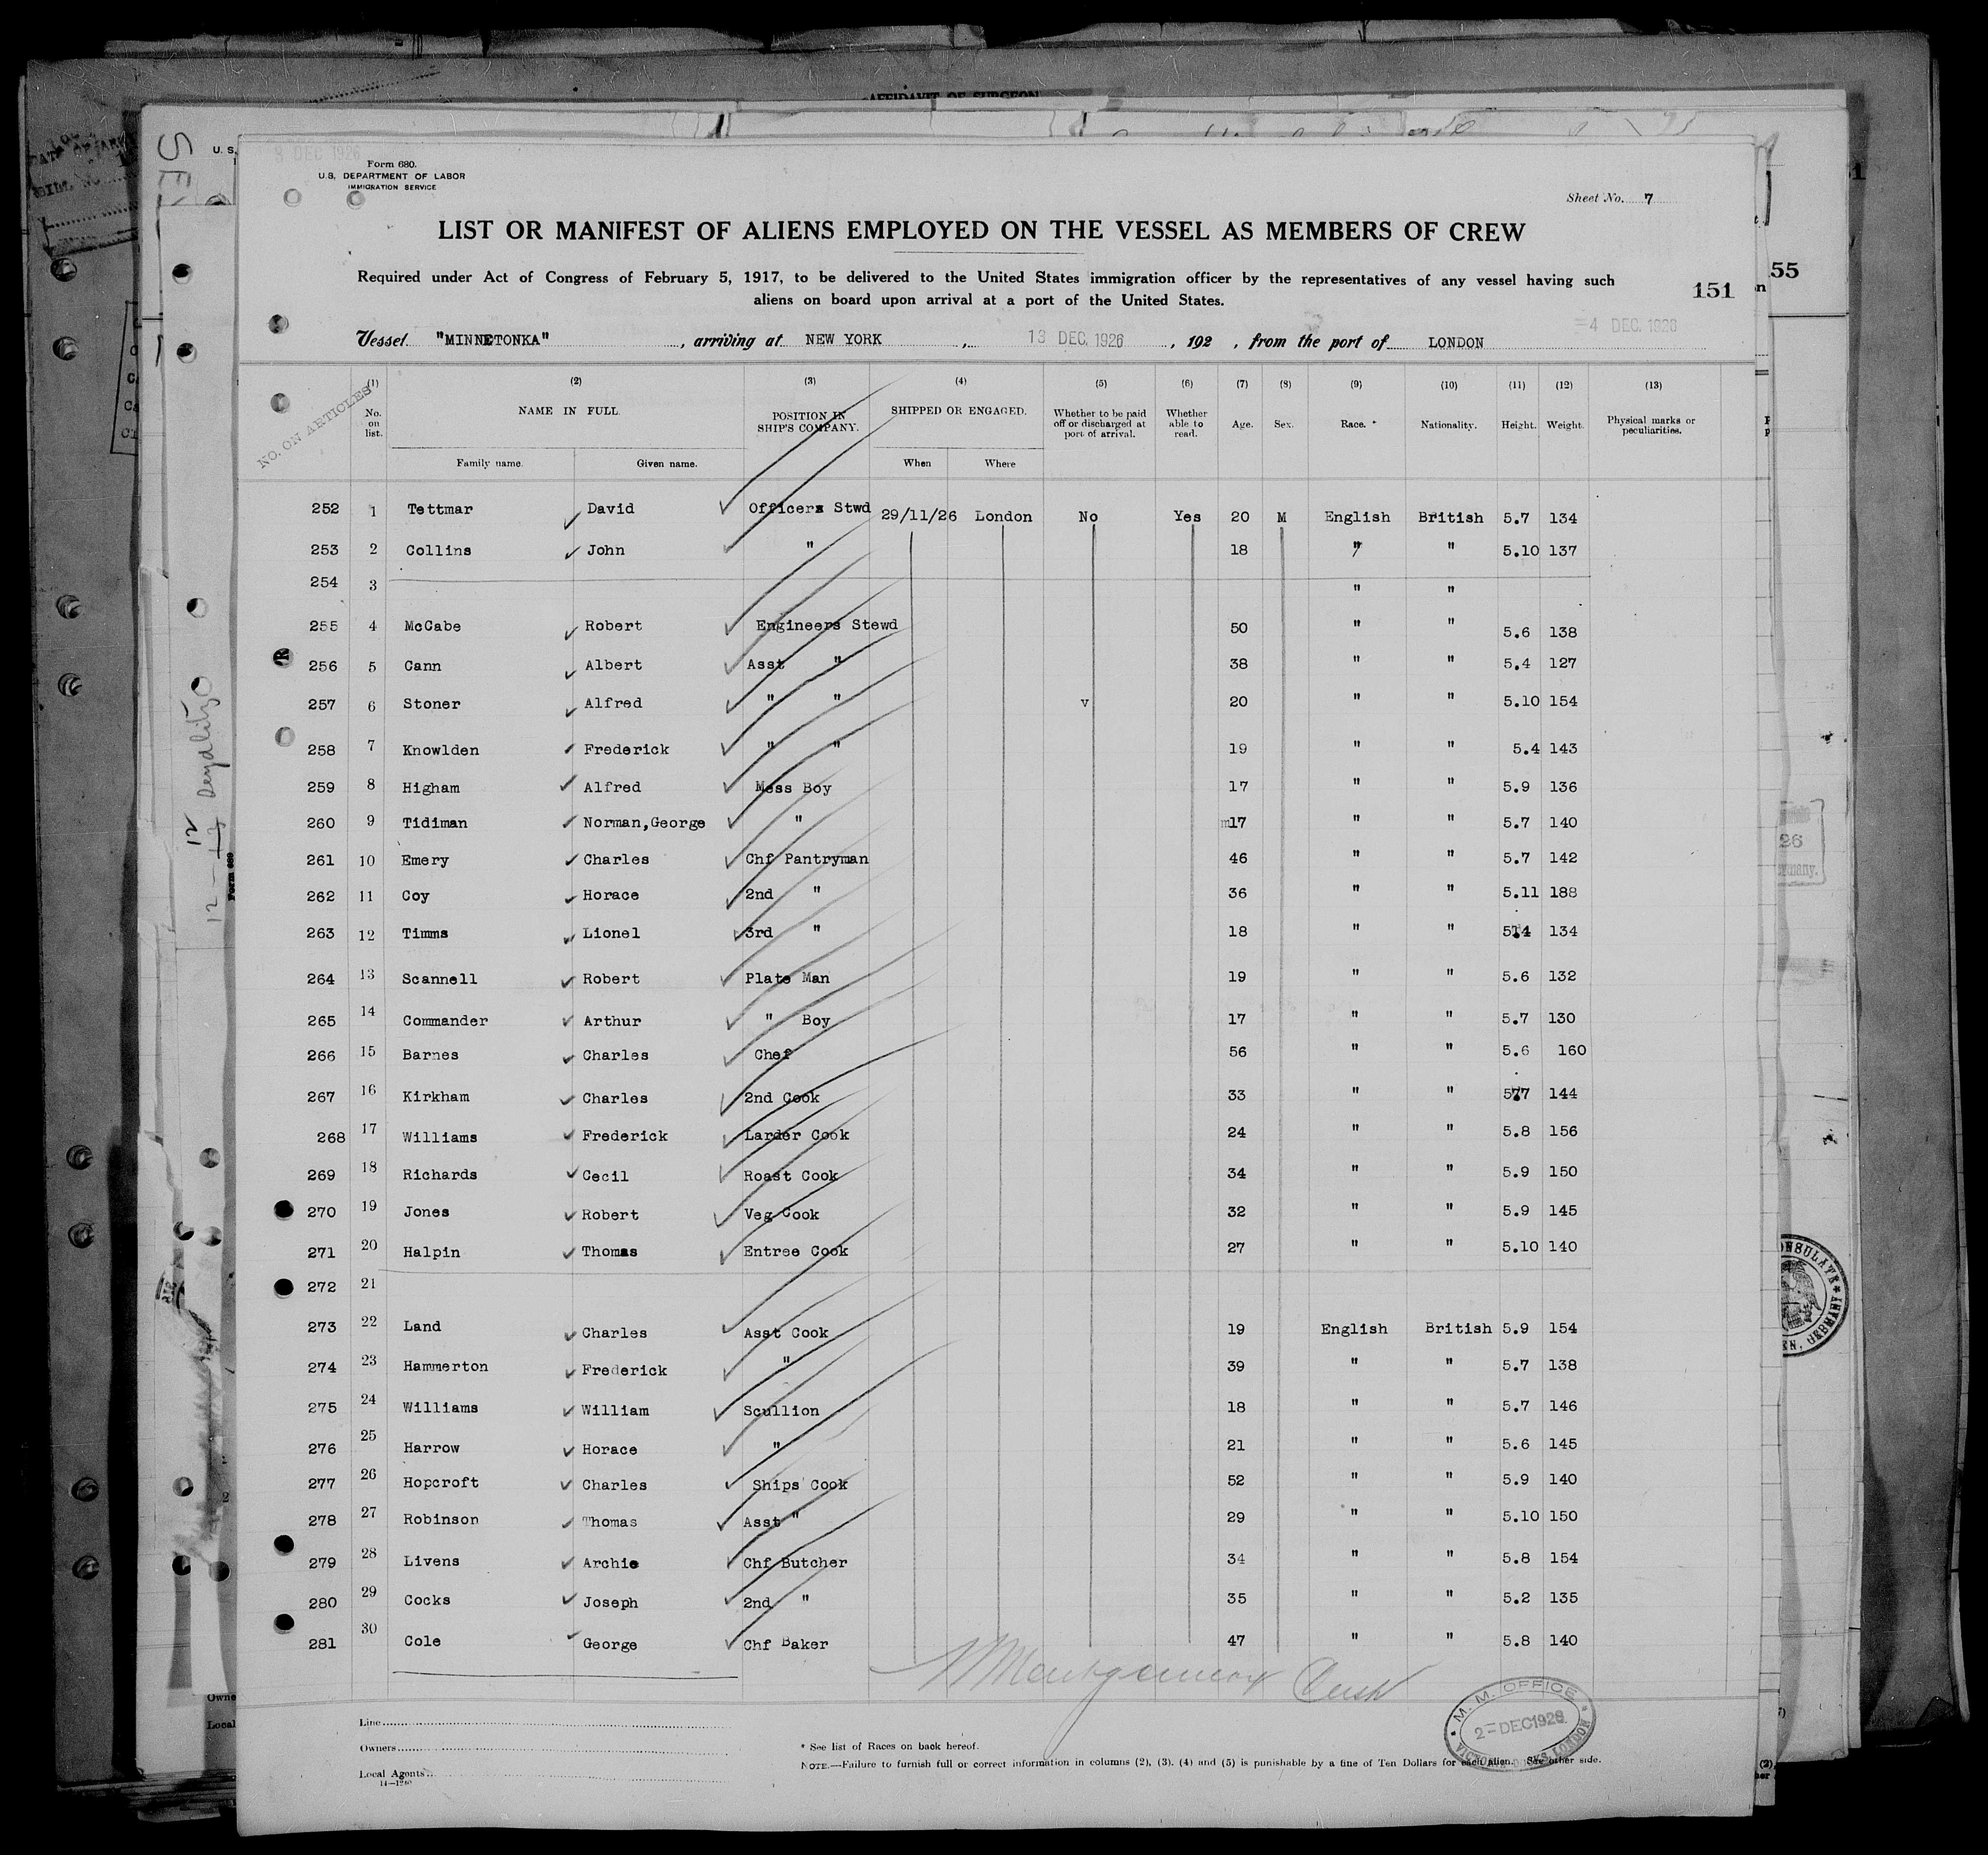 AFFIDAVIT OF SURGEON
DEC 1926
Form 680.
U.S. DEPARTMENT OF LABOR
IMMIGRATION SERVICE
Sheet No. 7
LIST OR MANIFEST OF ALIENS EMPLOYED ON THE VESSEL AS MEMBERS OF CREW
Required under Act of Congress of February 5, 1917, to be delivered to the United States immigration officer by the representatives of any vessel having such
aliens on board upon arrival at a port of the United States.
151
55
4 DEC. 1926
Vessel "MINNETONKA", arriving at NEW YORK, 13 DEC. 1926, 192 , from the port of LONDON
NO. ON ARTICLES
(1) (2) (3) (4) (5) (6) (7) (8) (9) (10) (11) (12) (13)
No. on list. NAME IN FULL. POSITION IN SHIP'S COMPANY. SHIPPED OR ENGAGED. Whether to be paid off or discharged at port of arrival. Whether able to read. Age. Sex. Race. * Nationality. Height. Weight. Physical marks or peculiarities.
Family name. Given name. When Where
252 1 Tettmar David Officers Stwd 29/11/26 London No Yes 20 M English British 5.7 134
253 2 Collins John " 18 " " 5.10 137
254 3 " "
255 4 McCabe Robert Engineers Stewd 50 " " 5.6 138
256 5 Cann Albert Asst " 38 " " 5.4 127
257 6 Stoner Alfred " " v 20 " " 5.10 154
258 7 Knowlden Frederick " " 19 " " 5.4 143
259 8 Higham Alfred Mess Boy 17 " " 5.9 136
260 9 Tidiman Norman,George " 17 " " 5.7 140
261 10 Emery Charles Chf Pantryman 46 " " 5.7 142
262 11 Coy Horace 2nd " 36 " " 5.11 188
263 12 Timms Lionel 3rd " 18 " " 5.4 134
264 13 Scannell Robert Plate Man 19 " " 5.6 132
265 14 Commander Arthur " Boy 17 " " 5.7 130
266 15 Barnes Charles Chef 56 " " 5.6 160
267 16 Kirkham Charles 2nd Cook 33 " " 5.7 144
268 17 Williams Frederick Larder Cook 24 " " 5.8 156
269 18 Richards Cecil Roast Cook 34 " " 5.9 150
270 19 Jones Robert Veg Cook 32 " " 5.9 145
271 20 Halpin Thomas Entree Cook 27 " " 5.10 140
272 21
273 22 Land Charles Asst Cook 19 English British 5.9 154
274 23 Hammerton Frederick " 39 " " 5.7 138
275 24 Williams William Scullion 18 " " 5.7 146
276 25 Harrow Horace " 21 " " 5.6 145
277 26 Hopcroft Charles Ships Cook 52 " " 5.9 140
278 27 Robinson Thomas Asst " 29 " " 5.10 150
279 28 Livens Archie Chf Butcher 34 " " 5.8 154
280 29 Cocks Joseph 2nd " 35 " " 5.2 135
281 30 Cole George Chf Baker 47 " " 5.8 140
Montgomery
M. M. OFFICE
2 - DEC 1926
Line
Owners
Local Agents
* See list of Races on back hereof.
NOTE.—Failure to furnish full or correct information in columns (2), (3), (4) and (5) is punishable by a fine of Ten Dollars for each alien. See other side.
Form 680